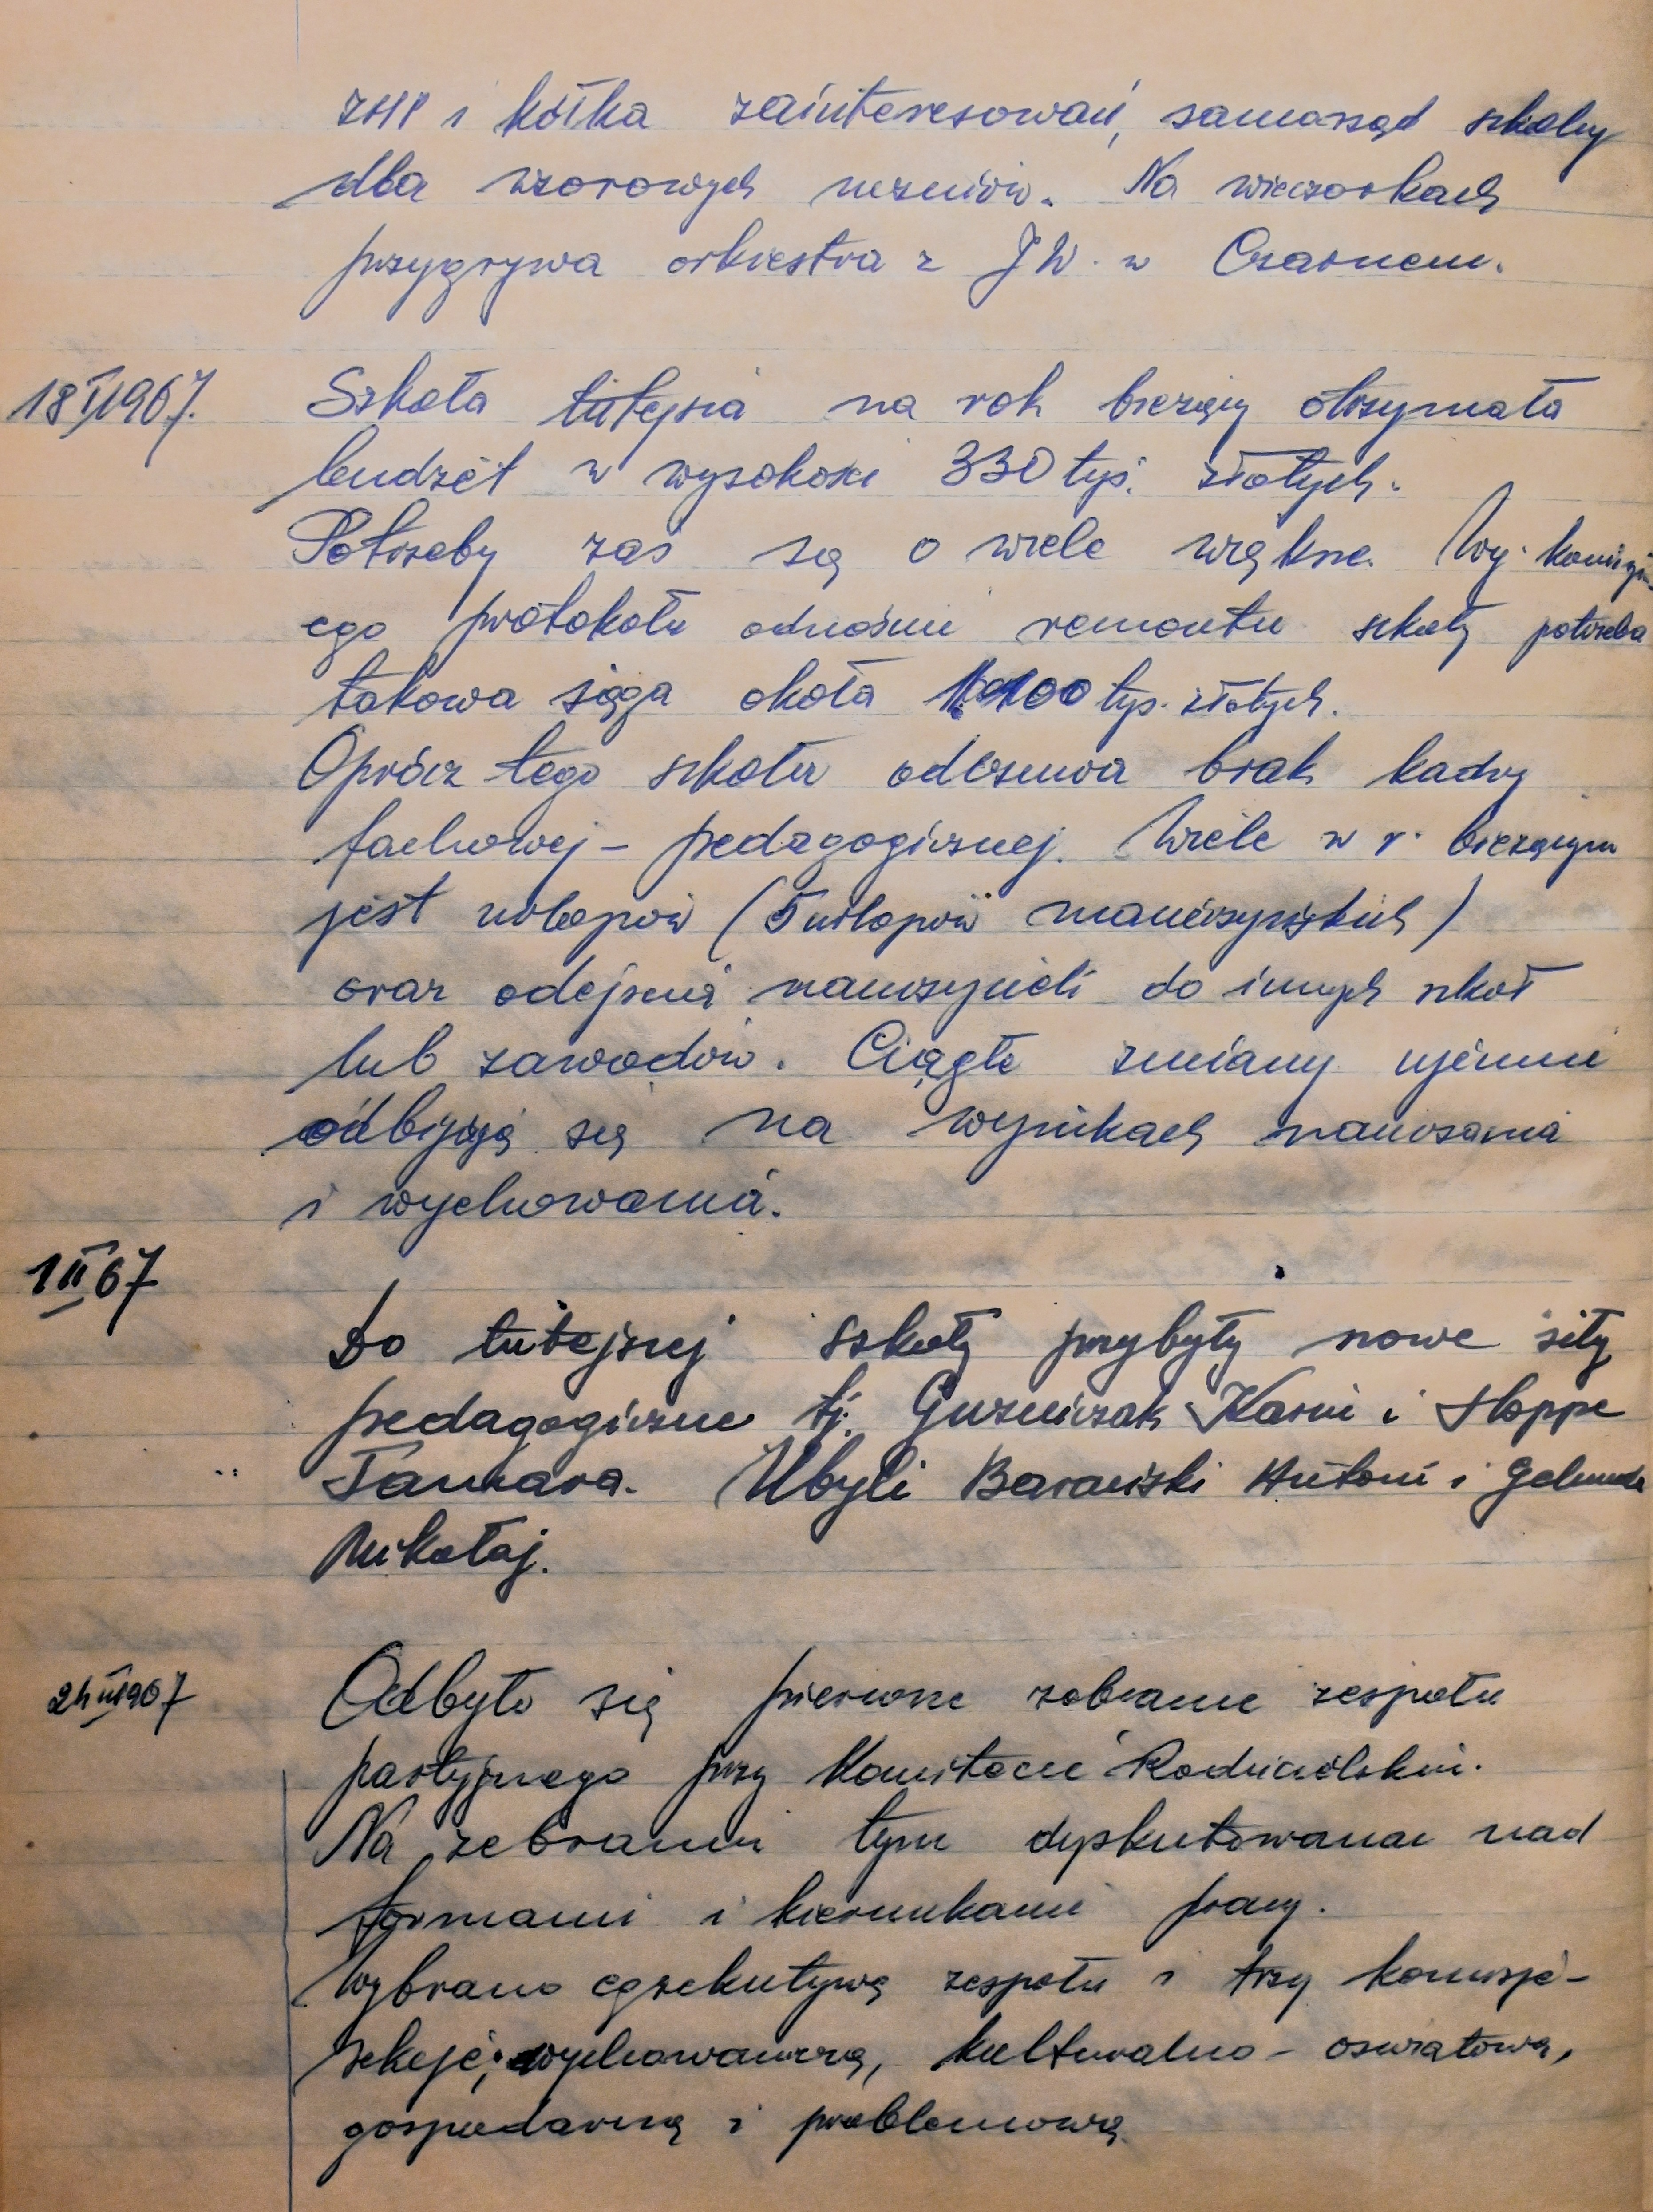 ZHP i kółka zainteresowań, samorząd szkolny
dla wzorowych uczniów. Na wieczorkach
przygrywa orkiestra z J.W. w Czarnem.
18 I 1967. Szkoła tutejsza na rok bieżący otrzymała
budżet w wysokości 330 tyś. złotych.
Potrzeby zaś są o wiele większe. Wg. komisyjn
ego protokołu odnośnie remontu szkoły potrzeba
takowa sięga około 100 tys. złotych.
Oprócz tego szkoła odczuwa brak kadry
fachowej - pedagogicznej. Wiele w r. bieżącym
jest urlopów (5 urlopów macierzyńskich)
oraz odejścia nauczycieli do innych szkół
lub zawodów. Ciągłe zmiany ujemnie
odbijają się na wynikach nauczania
i wychowania.
1 II 67
Do tutejszej szkoły przybyły nowe siły
pedagogiczne tj. Guzniczak i Hoppe
Tamara. Ubyli Barański Antoni i
Mikołaj.
24 III 1967 Odbyło się pierwsze zebranie zespołu
partyjnego przy Komitecie Rodzicielskim.
Na zebraniu tym dyskutowano nad
formami i kierunkami pracy.
Wybrano egzekutywę zespołu i trzy komisje -
sekcje; wychowawczą, kulturalno - oświatową,
gospodarczą i problemową.